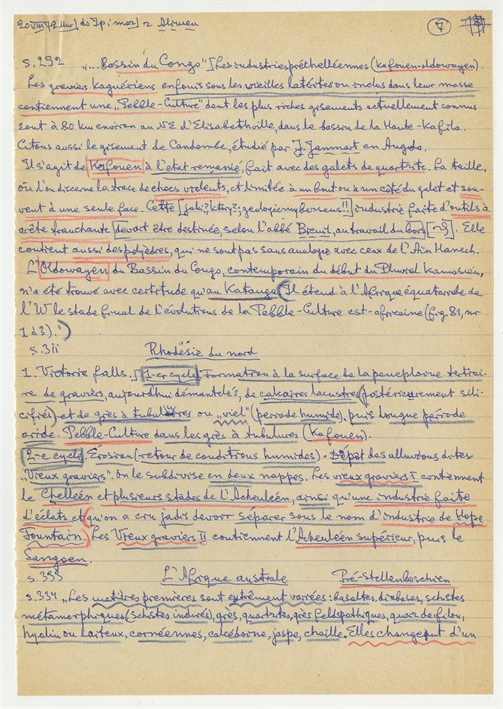 20 VIII 72 [do Ip i mor] z Alimen 7
s. 292 "... Bassin du Congo" [Les industries préchelléennes (kafouen-oldowayen).
Les graviers kaguériens enfouis sous les vieilles latérites ou inclus dans leur masse
contiennent une "Pebble-Culture" dont les plus riches gisements actuellement connus
sont à 80 km environ au NE d'Elisabethville, dans le bassin de la Haute-Kafila.
Citons aussi le gisement de Candombe, étudié par J. Janmart en Angola.
Il s'agit de Kafouen à l'état remanié, fait avec des galets de quartzite. La taille,
où l'on discerne la trace de chocs violents, est limitée à un bout ou à un côté du galet et sou-
vent à une seule face. Cette industrie faite d'outils à
arête tranchante devait être destinée, selon l'abbé Breuil, au travail du bois [~s]. Elle
contient aussi des polyèdres, qui ne sont pas sans analogie avec ceux de l'Aïn Hanech.
L'Oldowayen du Bassin du Congo, contemporain du début du Pluvial Kamasien,
n'a été trouvé avec certitude qu'au Katanga. Il étend à l'Afrique équatoriale de
l'W le stade final de l'évolution de la Pebble-Culture est-africaine (fig. 81, nr
1 à 3)."
s. 311 Rhodésie du nord
1. Victoria falls. [1-er cycle. Formation à la surface de la pénéplaine tertiai-
re de graviers, aujourd'hui démantelés, de calcaires lacustres (postérieurement sili-
cifiés) et de grès à tubulures ou "vieil" (période humide), puis longue période
aride. Pebble-Culture dans les grès à tubulures (Kafouen).
2-e cycle. Érosion (retour de conditions humides). Dépôt des alluvions dites
"Vieux graviers". On le subdivise en deux nappes. Les vieux graviers I contiennent
le Chelléen et plusieurs stades de l'Acheuléen, ainsi qu'une industrie faite
d'éclats et qu'on a cru jadis devoir séparer sous le nom d'industrie de Hope
Fountain. Les Vieux graviers II contiennent l'Acheuléen supérieur, puis le
Sangoen.
s. 333 L'Afrique australe Pré-Stellenboschien
s. 334 "Les matières premières sont extrêmement variées: basaltes, diabases, schistes
métamorphiques (schistes indurés), grès, quartzites, grès feldspathiques, quarz de filon,
hyalin ou laiteux, cornéennes, calcédoine, jaspe, chaille. Elles changent d'un